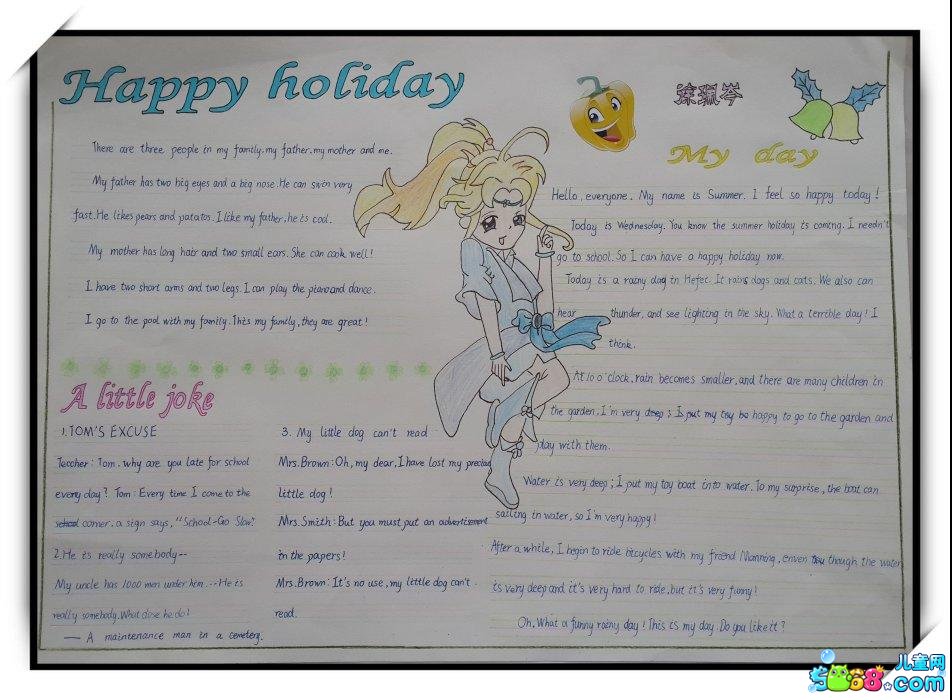 Happy holiday
There are three people in my family. my father. my mother and me.
My father has two big eyes and a big nose. He can swin very
fast. He likes pears and patatos. I like my father, he is cool.
My mother has long hair and two small ears. She can cook well!
I have two short arms and two legs. I can play the piano and dance.
I go to the pool with my family. This my family, they are great!
A little joke
1. TOM'S EXCUSE
Teccher: Tom. why are you late for school
every day? Tom: Every time I come to the
school corner. a sign says, "School-Go Slow".
2. He is really somebody--
My uncle has 1000 men under him. --- He is
really somebody. What dose he do!
— A maintenance man in a cemetery.
3. My little dog can't read
Mrs. Brown: Oh, my dear, I have lost my precias
little dog!
Mrs. Smith: But you must put an advertisement
in the papers!
Mrs. Brown: It's no use, my little dog can't.
read.
涂珮岑
My day
Hello, everyone. My name is Summer. I feel so happy today!
Today is Wednesday. You know the summer holiday is coming. I needn't
go to school. So I can have a happy holiday now.
Today is a rainy day in Hefei. It rains dogs and cats. We also can
hear thunder, and see lighting in the sky. What a terrible day! I
think.
At 10 o'clock, rain becomes smaller, and there are many children in
the garden, I'm very deep; I put my toy be happy to go to the garden and
play with them.
Water is very deep; I put my toy boat into water. To my surprise, the boat can
sailing in water, so I'm very happy!
After a while, I begin to ride bicycles with my friend Manning, enven though the water
is very deep and it's very hard to ride, but it's very funny!
Oh, What a funny rainy day! This is my day. Do you like it?
儿童网
5068.com